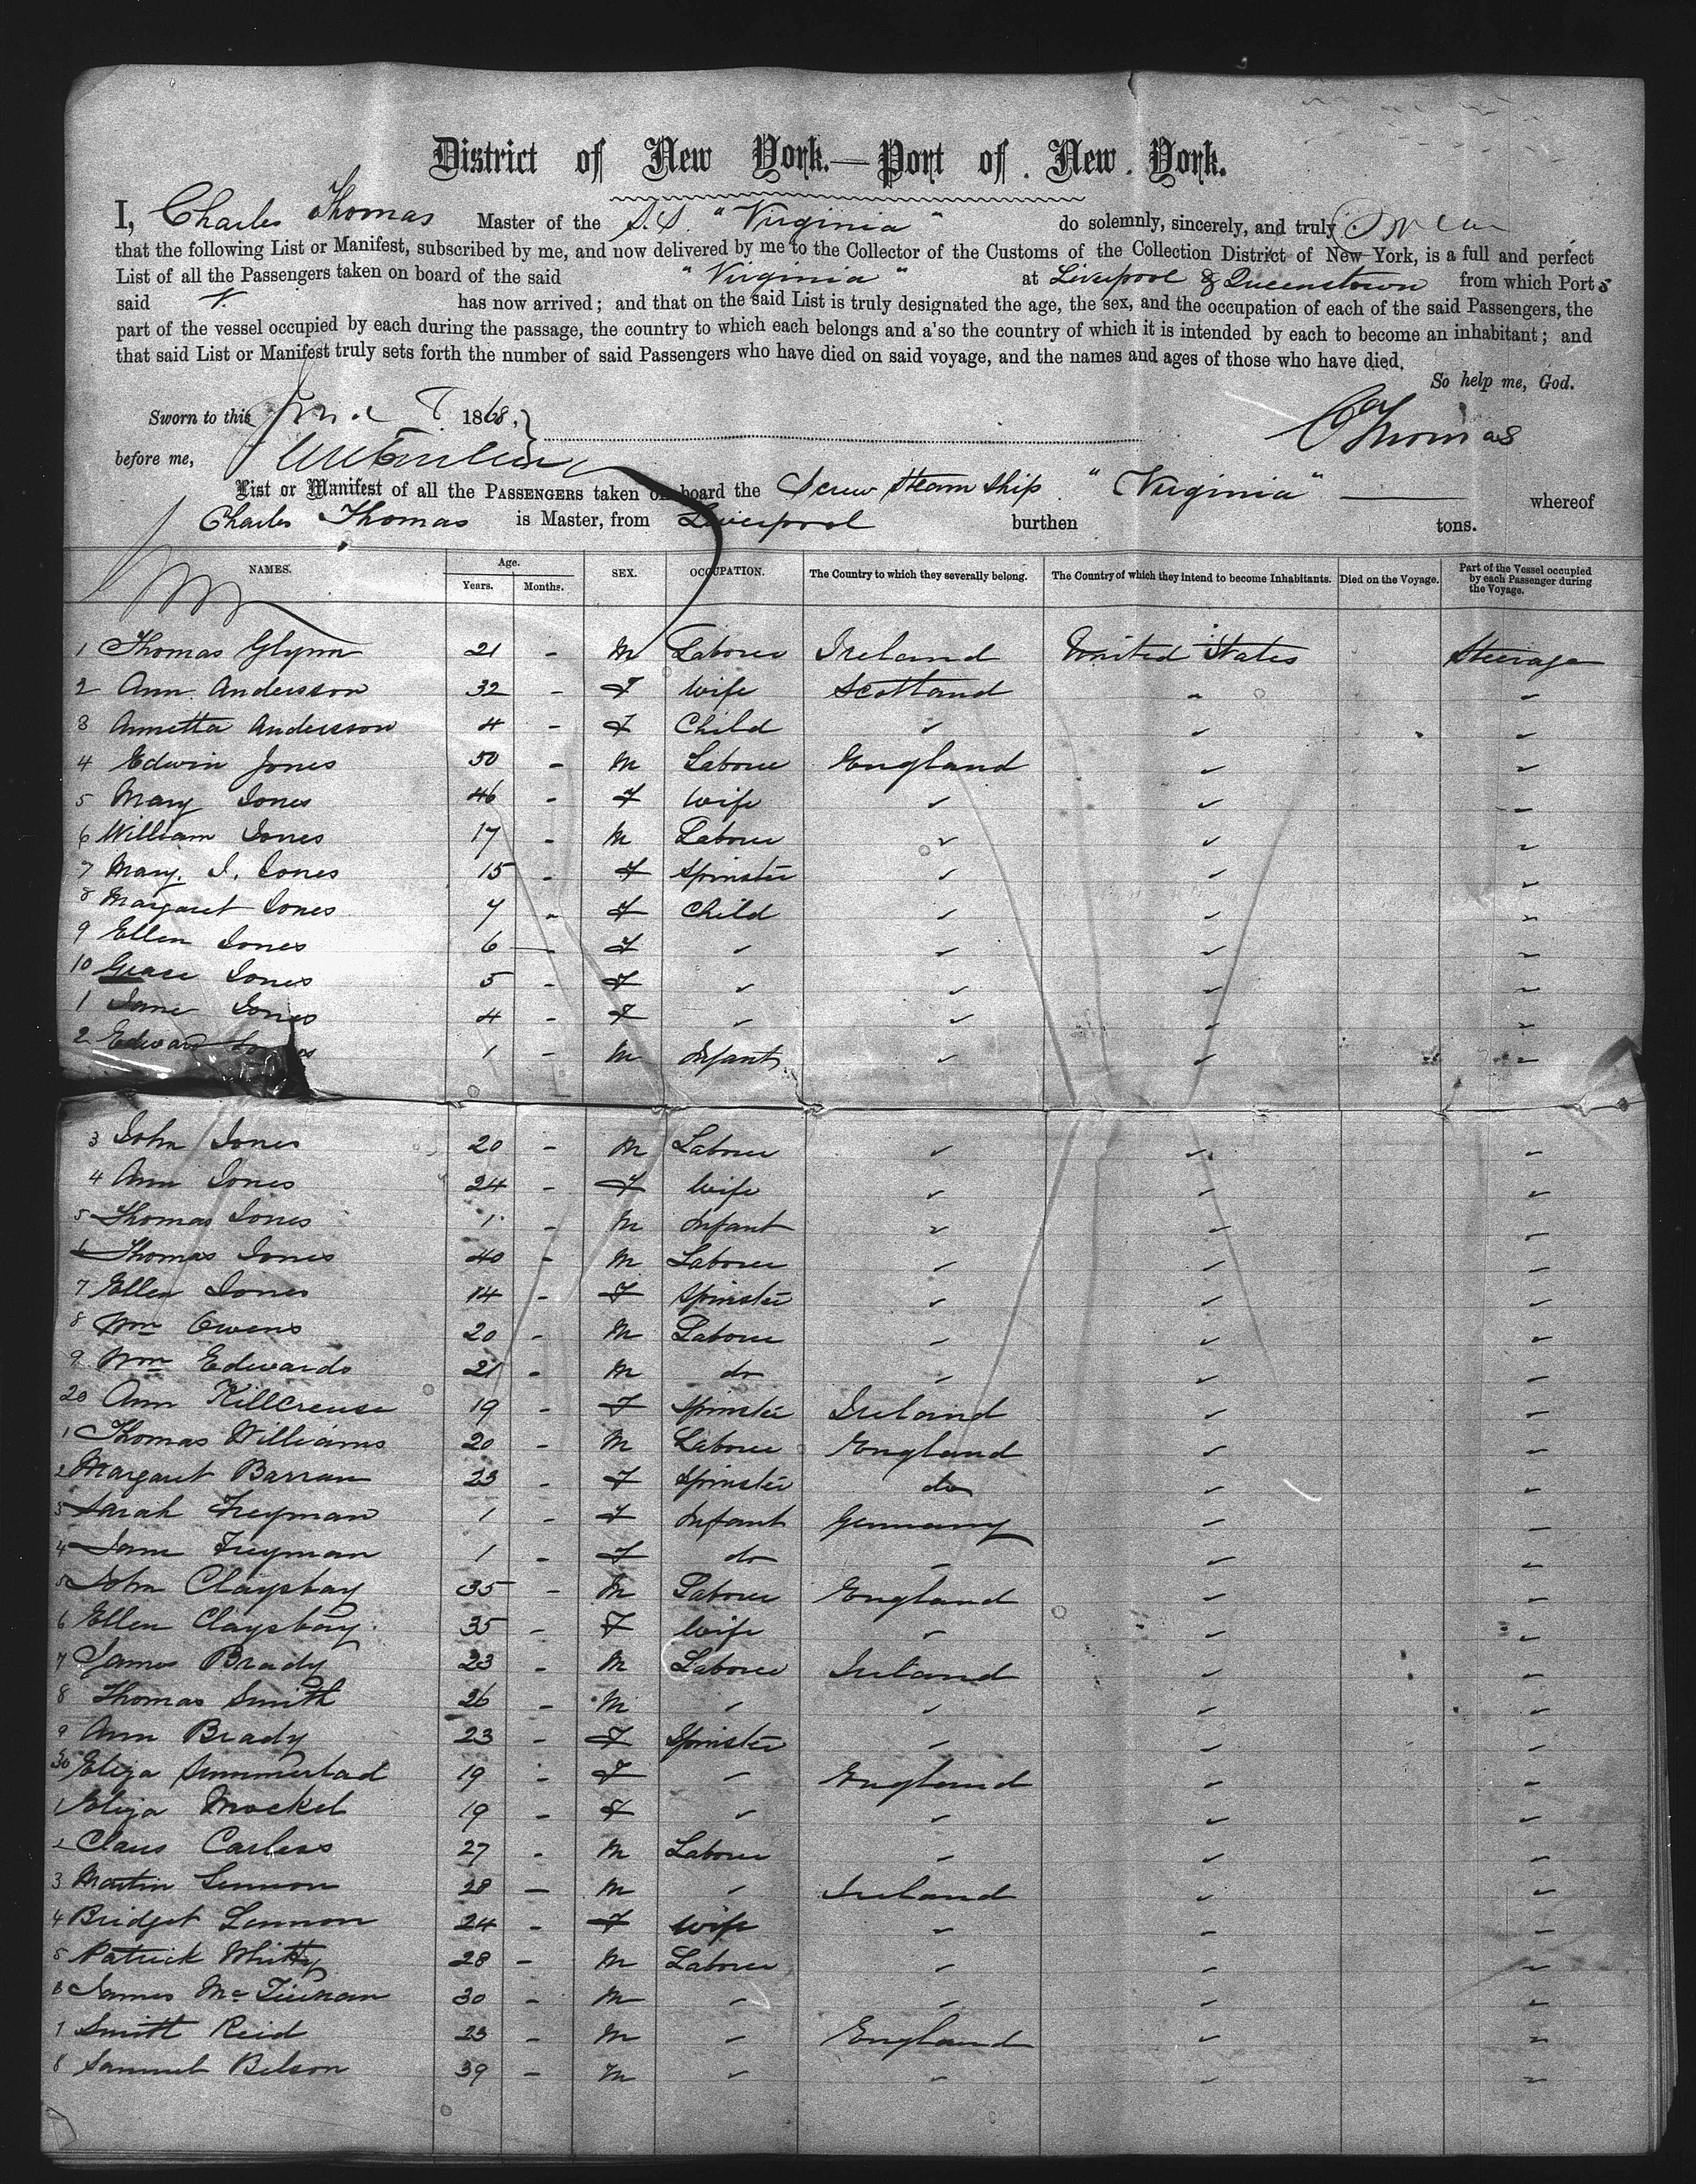 District of New York.—Port of New York.
I, Charles Thomas Master of the S.S. "Virginia" do solemnly, sincerely, and truly Swear
that the following List or Manifest, subscribed by me, and now delivered by me to the Collector of the Customs of the Collection District of New York, is a full and perfect
List of all the Passengers taken on board of the said "Virginia" at Liverpool & Queenstown from which Ports
said V. has now arrived; and that on the said List is truly designated the age, the sex, and the occupation of each of the said Passengers, the
part of the vessel occupied by each during the passage, the country to which each belongs and a'so the country of which it is intended by each to become an inhabitant; and
that said List or Manifest truly sets forth the number of said Passengers who have died on said voyage, and the names and ages of those who have died.
So help me, God.
Sworn to this 1868,
C Thomas
before me,
List or Manifest of all the PASSENGERS taken on board the Screw Steam Ship "Virginia" whereof
Charles Thomas is Master, from Liverpool burthen tons.
NAMES. Age. Years. Months. SEX. OCCUPATION. The Country to which they severally belong. The Country of which they intend to become Inhabitants. Died on the Voyage. Part of the Vessel occupied by each Passenger during the Voyage.
1 Thomas Glynn 21 - M Laborer Ireland United States Steerage
2 Ann Andersson 32 - F Wife Scotland " "
3 Annetta Andersson 4 - F Child " " "
4 Edwin Jones 50 - M Laborer England " "
5 Mary Jones 46 - F Wife " " "
6 William Jones 17 - M Laborer " " "
7 Mary. J. Jones 15 - F Spinster " " "
8 Margaret Jones 7 - F Child " " "
9 Ellen Jones 6 - F " " " "
10 Grace Jones 5 - F " " " "
1 Jane Jones 4 - F " " " "
2 Edward Jones 1 - M Infant " " "
3 John Jones 20 - M Laborer " " "
4 Ann Jones 24 - F Wife " " "
5 Thomas Jones 1 - M Infant " " "
6 Thomas Jones 40 - M Laborer " " "
7 Ellen Jones 14 - F Spinster " " "
8 Wm Owens 20 - M Laborer " " "
9 Wm Edwards 21 - M do " " "
20 Ann Killcreuse 19 - F Spinster Ireland " "
1 Thomas Williams 20 - M Laborer England " "
2 Margaret Barran 23 - F Spinster do " "
3 Sarah Freyman 1 - F Infant Germany " "
4 Jane Freyman 1 - F do " " "
5 John Claysbay 35 - M Laborer England " "
6 Ellen Claysbay 35 - F Wife " " "
7 James Brady 23 - M Laborer Ireland " "
8 Thomas Smith 26 - M " " " "
9 Ann Brady 23 - F Spinster " " "
30 Eliza Summerbad 19 - F " England " "
1 Eliza Mockel 19 - F " " " "
2 Claus Carless 27 - M Laborer " " "
3 Martin Lennon 28 - M " Ireland " "
4 Bridget Lennon 24 - F Wife " " "
5 Patrick Whitty 28 - M Laborer " " "
6 James McTiernan 30 - M " " " "
7 Smith Reid 23 - M " England " "
8 Samuel Belson 39 - M " " " "